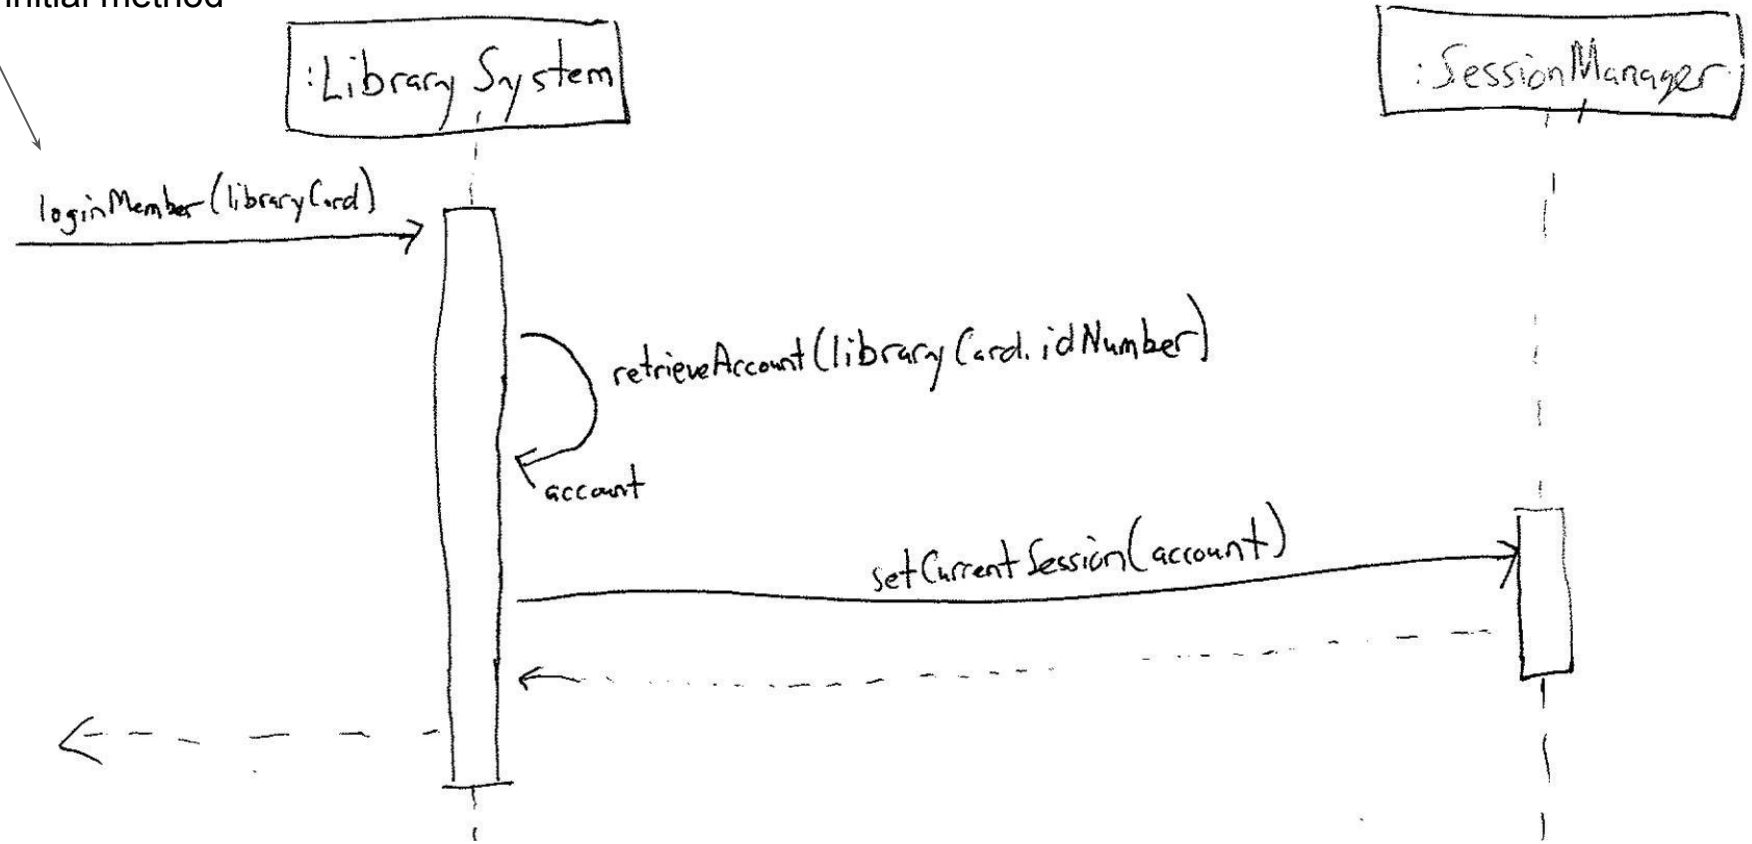 initial method
:Library System
:SessionManager
loginMember(libraryCard)
retrieveAccount(libraryCard.idNumber)
account
setCurrentSession(account)